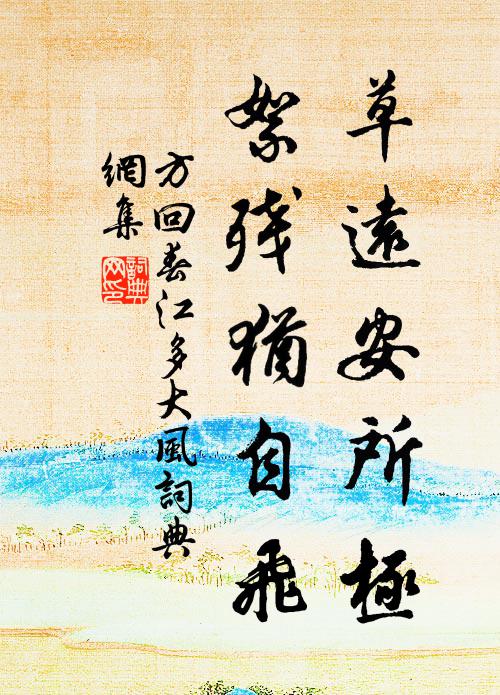 草遠安所極
絮残猶自飛
方回春江多大風詞典
網集
詞典
网印